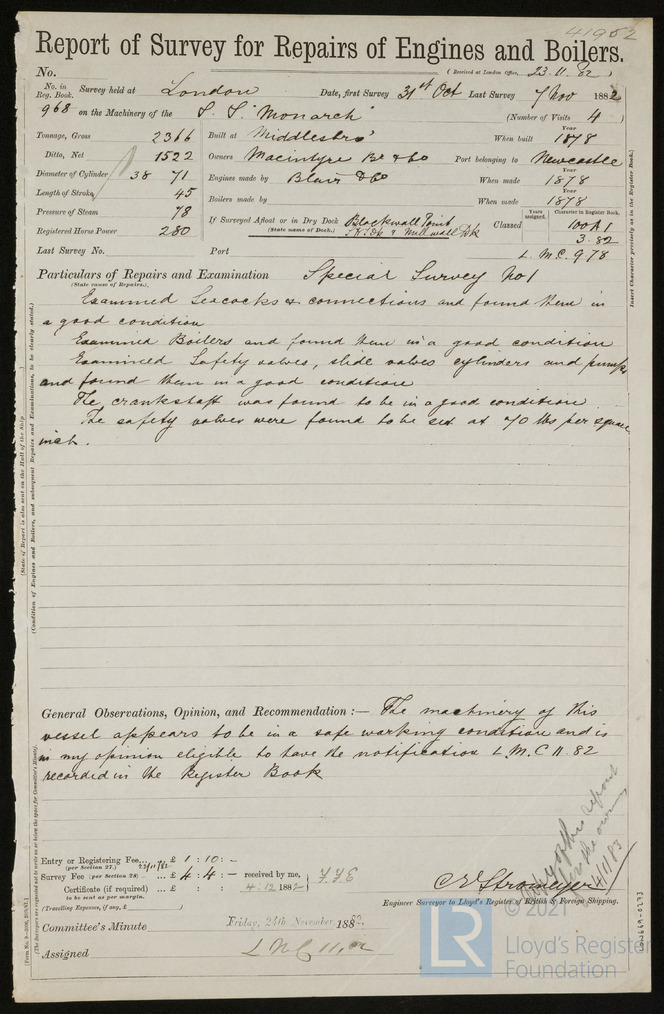 41952
Report of Survey for Repairs of Engines and Boilers.
No. (Received at London Office, 23.11.82)
No. in Reg. Book. Survey held at London Date, first Survey 31st Oct Last Survey 7 Nov 1882
968 on the Machinery of the S. S. "Monarch" (Number of Visits 4)
Tonnage, Gross 2366 Built at Middlesbro' When built Year 1878
Ditto, Net 1522 Owners Macintyre Br & Co Port belonging to Newcastle
Diameter of Cylinder 38 71 Engines made by Blair & Co When made Year 1878
Length of Stroke 45 Boilers made by When made Year 1878
Pressure of Steam 78 If Surveyed Afloat or in Dry Dock Blackwall Point Classed Years assigned. Character in Register Book. 100A1
Registered Horse Power 280 (State name of Dock.) & Millwall Dk 3.82
Last Survey No. Port L. M. C. 9.78
Particulars of Repairs and Examination Special Survey No 1
(State name of Repairs.)
Examined Seacocks & connections and found them in
a good condition
Examined Boilers and found them in a good condition
Examined Safety valves, slide valves cylinders and pumps
and found them in a good condition
The crankshaft was found to be in a good condition.
The safety valves were found to be set at 70 lbs per square
inch.
General Observations, Opinion, and Recommendation :— The machinery of this
vessel appears to be in a safe working condition and is
in my opinion eligible to have the notification L. M. C 11. 82
recorded in the Register Book
Entry or Registering Fee... £ 1 : 10 : –
(per Section 27.) 23/11/82
Survey Fee (per Section 28) £ 4 : 4 : – received by me,
Certificate (if required) ... £ : : 4.12 1882
to be sent as per margin.
(Travelling Expenses, if any, £ )
C E Stromeyer
Engineer Surveyor to Lloyd's Register of British & Foreign Shipping.
Committee's Minute Friday, 24th November, 1882.
Assigned L M C 11,82
Insert Character precisely as in the Register Book.)
(State if Report is also sent on the Hull of the Ship )
(Condition of Engines and Boilers, and subsequent Repairs and Examinations, to be clearly stated.)
(The Surveyors are requested not to write on or below the space for Committee's Minute).
Copy of this report
for the owners
4/1/83
© 2021
LR
Lloyd's Register
Foundation